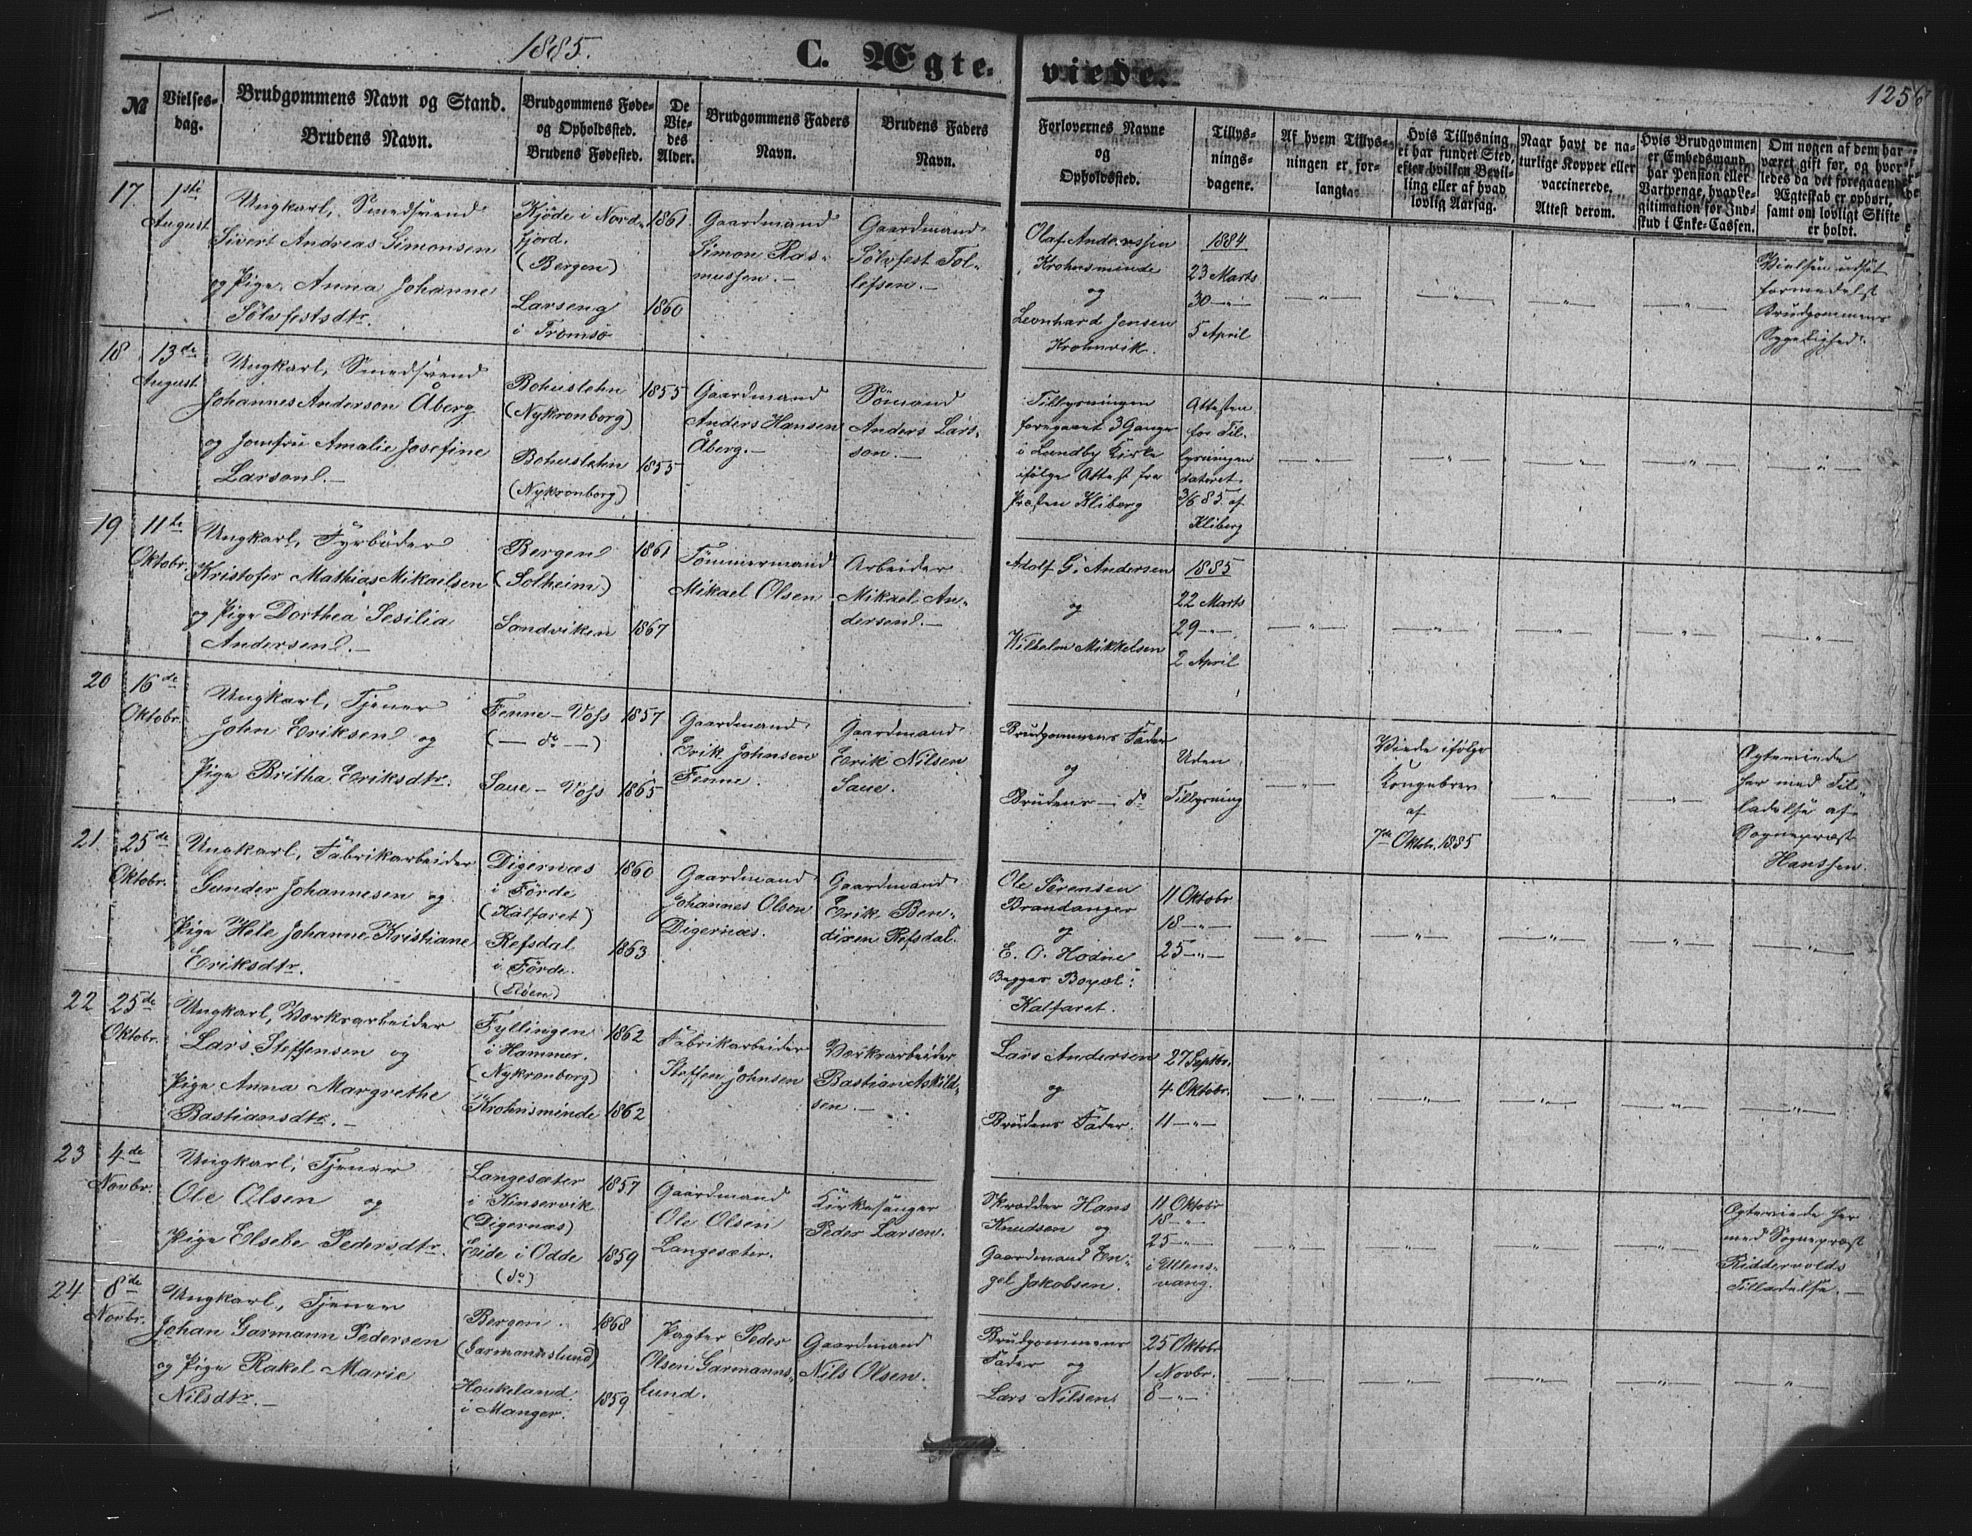 1885.
C. Ægte-
viede.
125
№
Vielses-
dag.
Brudgommens Navn og Stand.
Brudens Navn.
Brudgommens Føde-
og Opholdssted.
Brudens Fødested.
De
Vie-
des
Alder.
Brudgommens Faders
Navn.
Brudens Faders
Navn.
Forlovernes Navne
og
Opholdssted.
Tillys-
nings-
dagene.
Af hvem Tillys-
ningen er for-
langt.
Hvis Tillysning
ei har fundet Sted,
efter hvilken Bevil-
ling eller af hvad
lovlig Aarsag.
Naar havt de na-
turlige Kopper eller
vaccinerede.
Attest derom.
Hvis Brudgommen
er Embedsmand,
har Pension eller
Vartpenge, hvad Le-
gitimation for Ind-
skud i Enke-Cassen.
Om nogen af dem har
været gift før, og hvor-
ledes da det foregaaende
Ægteskab er ophørt,
samt om lovligt Skifte
er holdt.
17
1ste
August
Ungkarl, Smedsvend
Sivert Andreas Simonsen
og Pige Anna Johanne
Sølvfestsdtr.
Kjøde i Nord-
fjord.
(Bergen)
Larseng
i Tromsø
1861
1860
Gaardmand
Simon Ras-
mussen.-
Gaardmand
Sølvfest Tol-
lefsen.-
Olaf Anderssen
Krohnsminde
og
Leonhard Jensen
Krohnvik.
1884
23 Marts
30 -"-
5 April
Vielsen udsat
formedelst
Brudgommens
Sygelighed.
18
13de
August
Ungkarl, Smedsvend
Johannes Anderson Åberg
og Jomfru Amalie Josefine
Larson.-
Bohuslehn
(Nykronborg)
Bohuslehn
(Nykronborg)
1855
1855
Gaardmand
Anders Hansen
Åberg.-
Sømand
Anders Lars-
son.-
Tillysningen
foregaaet 3 Gange
i Lundby Kirke
ifølge Attest fra
Kliberg
Attesten
for Til-
lysningen
dateret
3/6 85 af
Kliberg
19
11te
Oktobr.
Ungkarl, Fyrbøder
Kristofer Mathias Mikaelsen
og Pige Dorthea Sesilia
Andersen.-
Bergen
(Solheim)
Sandviken
1861
1867
Tømmermand
Mikael Olsen
Arbeider
Mikael An-
dersen.-
Adolf G. Andersen
og
Wilhelm Mikkelsen
1885
22 Marts
29 -"-
2 April
20
16de
Oktobr.
Ungkarl, Tjener
John Eriksen og
Pige Britha Eriksdtr.
Fenne - Voss
(- do -)
Saue - Voss
1857
1865
Gaardmand
Erik Johnsen
Fenne.
Gaardmand
Erik Nilsen
Saue.
Brudgommens Fader
og
Brudens - do
Uden
Tillysning
Viede ifølge
Kongebrev
af
7de Oktobr. 1885
Ægteviede
her med Til-
ladelse af
Sogneprest
Hanssen.
21.
25de
Oktobr.
Ungkarl, Fabrikarbeider
Gunder Johannesen og
Pige Hele Johanne Kristiane
Eriksdtr.
Digernæs
i Førde
(Kalfaret)
Refsdal
i Førde.
(Fløen)
1860
1863
Gaardmand
Johannes Olsen
Digernæs.
Gaardmand
Erik Ben-
dixen Refsdal.
Ole Sørensen
Brandanger
og
E. O. Hodne
Begges Bopæl:
Kalfaret.
11 Oktobr
18 -"-
25 -"-
22
25de
Oktobr.
Ungkarl, Værksarbeider
Lars Steffensen og
Pige Anna Margrethe
Bastiansdtr.-
Fyllingen
i Hammer.
(Nykronborg)
Krohnsminde
1862
1862
Fabrikarbeider
Steffen Johnsen
Værksarbeider
Bastian Askild-
sen.-
Lars Andersen
og
Brudens Fader.
27 Septbr.
4 Oktobr.
11 -"-
23
4de
Novbr.
Ungkarl, Tjener
Ole Olsen og
Pige Elsebe Pedersdtr.
Langesæter
i Kinservik
(Digernæs)
Eide i Odde
(do)
1857
1859
Gaardmand
Ole Olsen
Langesæter.
Kirkesanger
Peder Larsen.
Skrædder Hans
Knudsen og
Gaardmand En-
gel Jakobsen.
11 Oktobr
18 -"-
25 -"-
i Ullens-
vang.
Ægteviede her
med Sogneprest
Riddervolds
Tilladelse.-
24
8de
Novbr.
Ungkarl, Tjener
Johan Garmann Pedersen
og Pige Rakel Marie
Nilsdtr.-
Bergen.
(Garmannslund)
Haukeland
i Manger.
1868
1859
Pagter Peder
Olsen Garmanns-
lund.
Gaardmand
Nils Olsen.
Brudgommens
Fader og
Lars Nilsen
25 Oktobr
1 Novbr.
8 -"-